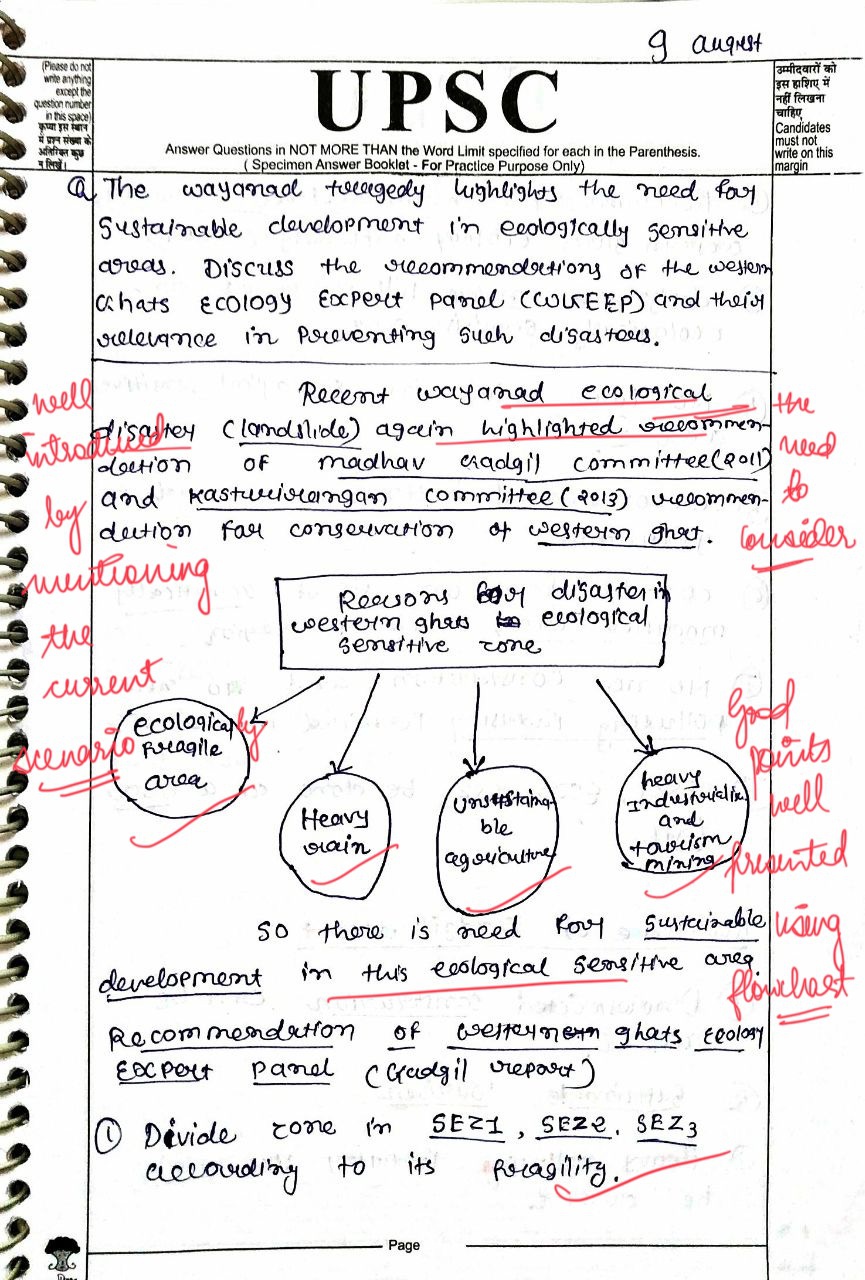 9 august
(Please do not
write anything
except the
question number
in this space)
कृपया इस स्थान
में प्रश्न संख्या के
अतिरिक्त कुछ
न लिखें।
UPSC
Answer Questions in NOT MORE THAN the Word Limit specified for each in the Parenthesis.
( Specimen Answer Booklet - For Practice Purpose Only)
उम्मीदवारों को
इस हाशिए में
नहीं लिखना
चाहिए
Candidates
must not
write on this
margin
Q The wayanad tragedy highlights the need for
Sustainable development in ecologically sensitive
areas. Discuss the recommendations of the western
Ghats ECOLOGY Expert panel (WGEEP) and their
relevance in preventing such disasters.
Recent wayanad ecological
disaster (landslide) again highlighted recommen-
dation of madhav Gadgil committee (2011)
and Kasturirangan committee (2013) recommen-
dation for conservation of western ghat.
well
introduced
by
mentioning
the
current
scenario
the
need
to
consider
Reasons for disaster in
western ghats ecological
sensitive zone
ecologically
fragile
area
Heavy
rain
Unsustaina-
ble
agriculture
heavy
Industrializ
and
tourism
mining
Good
points
well
presented
using
flowchart
SO there is need for sustainable
development in this ecological sensitive area.
Recommendation of western ghats Ecology
Expert panel (Gadgil report)
① Divide zone in SEZ1, SEZ2. SEZ3
according to its fragility.
Page